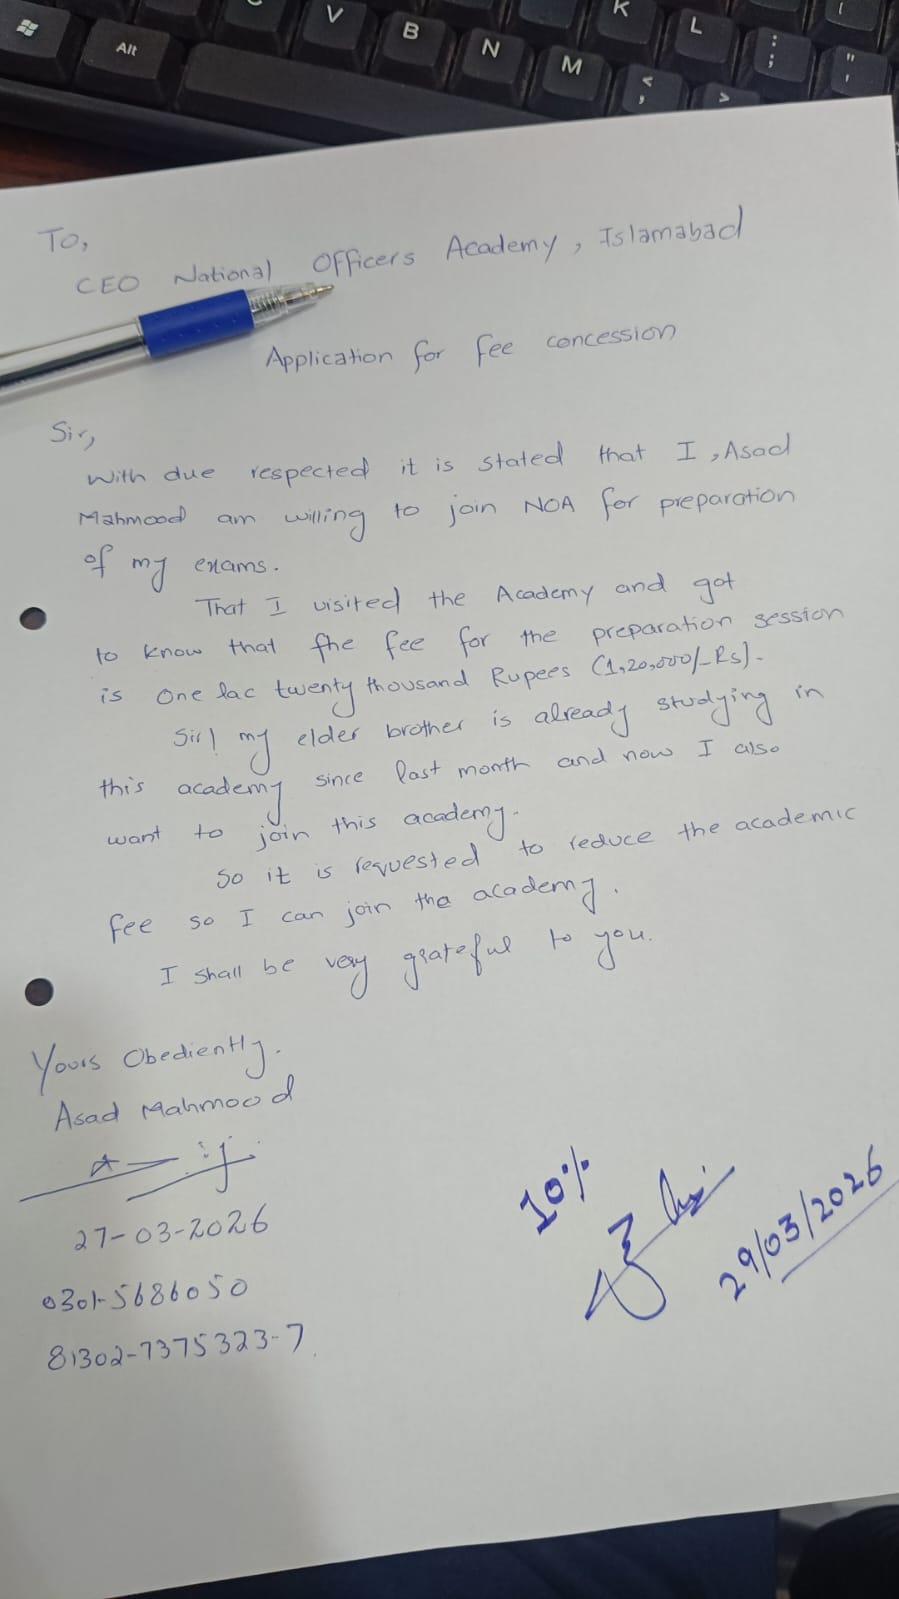 V B N M K L
Alt
To,
CEO National Officers Academy, Islamabad
Application for fee concession
Sir,
With due respected it is stated that I, Asad
Mahmood am willing to join NOA for preparation
of my exams.
That I visited the Academy and got
to know that the fee for the preparation session
is One lac twenty thousand Rupees (1,20,000/-Rs).
Sir! my elder brother is already studying in
this academy since last month and now I also
want to join this academy.
So it is requested to reduce the academic
fee so I can join the academy.
I shall be very grateful to you.
Yours Obediently.
Asad Mahmood
27-03-2026
0301-5686050
81302-7375323-7
10%
29/03/2026